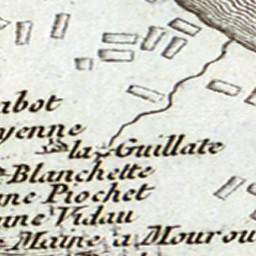 abot
yenne
la Guillate
Blanchette
ne Piochet
nne Vidau
Maine a Mourou